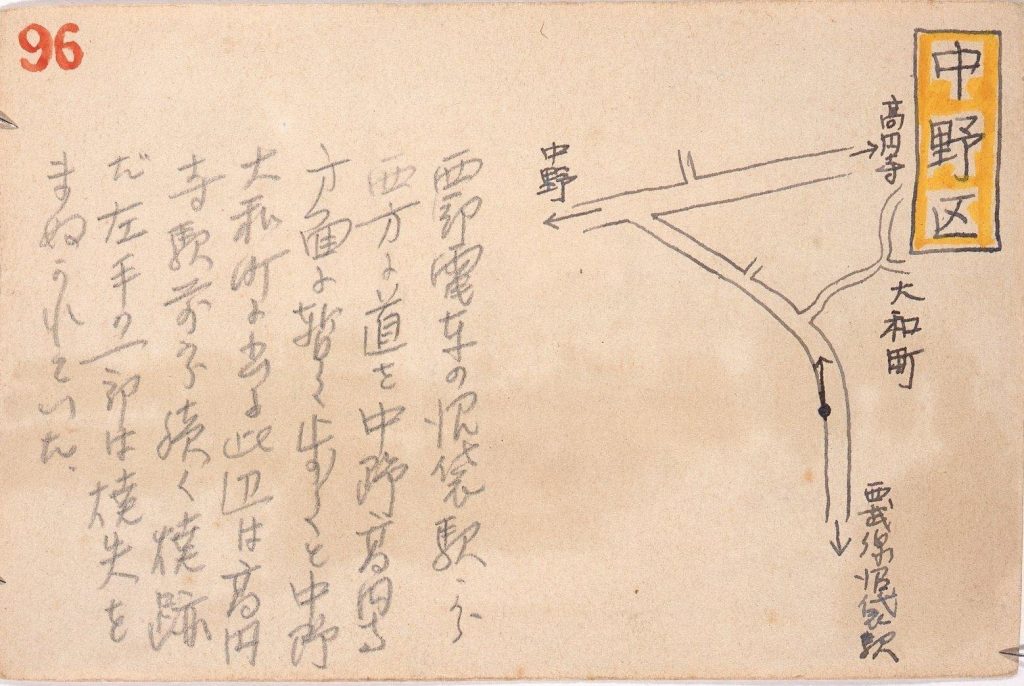 96
中野区
高円寺
中野
大和町
西武線沼袋駅
西部電車の沼袋駅から
西方に道を中野高円寺
方面に暫く歩くと中野
大和町に出る此辺は高円
寺駅前から続く焼跡
だ左手の一部は焼失を
まぬかれていた、